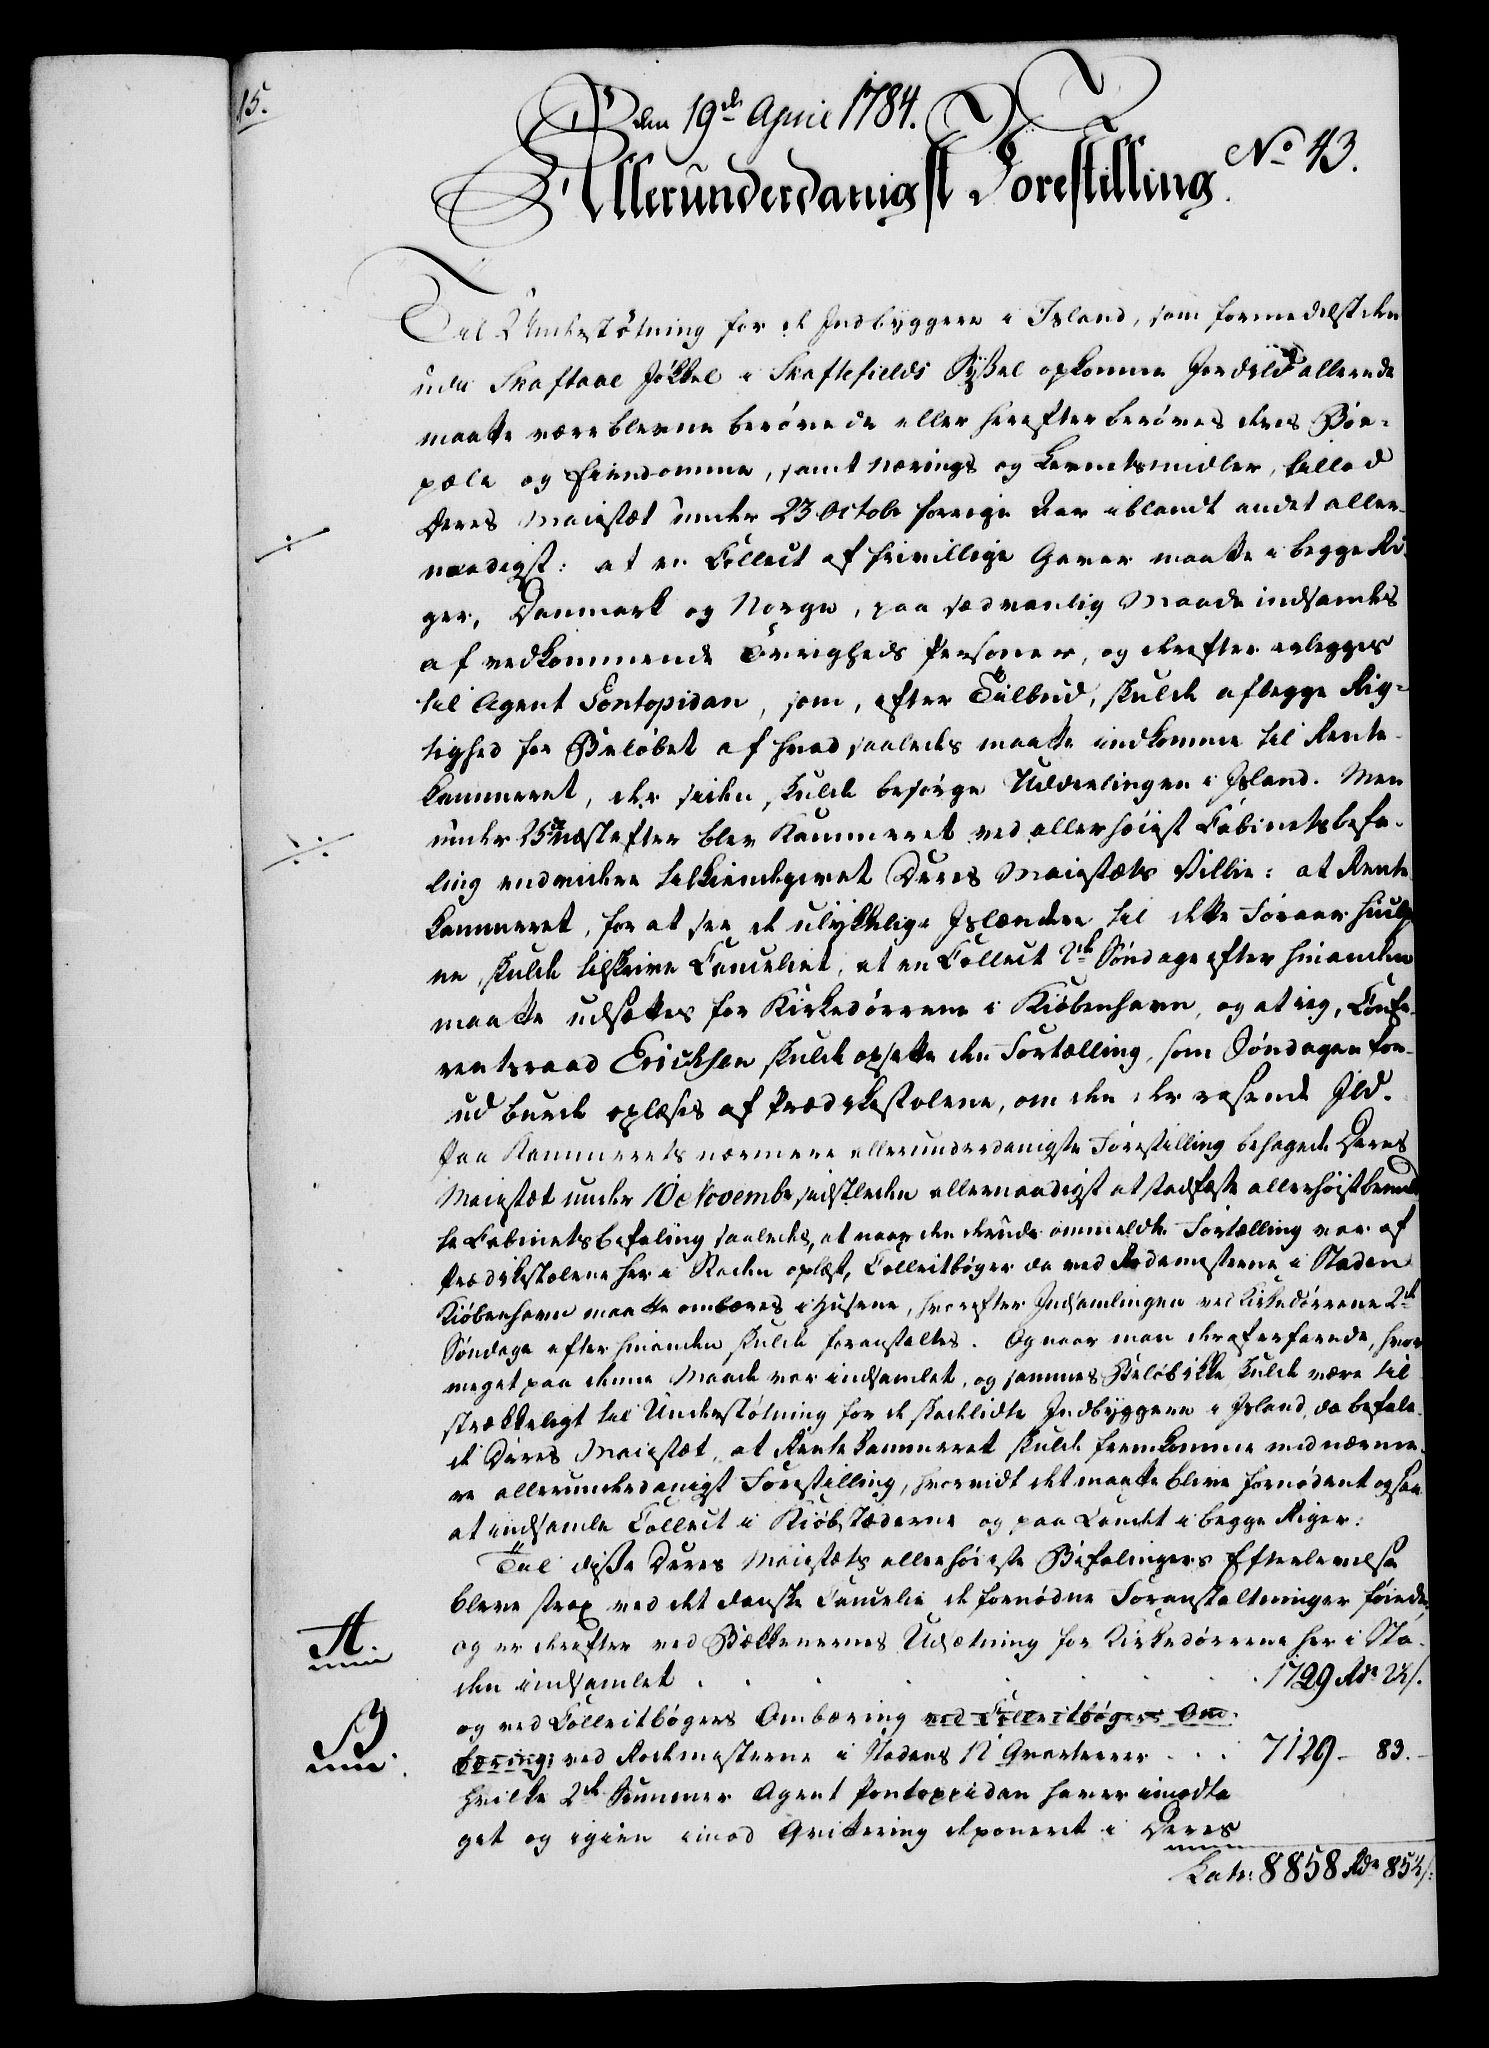 15.
den 19de April 1784.
No 43.
Allerunderdanigst Forestilling.
Til Understøtning for de Indbyggere i Island, som formedelst den
udi Skaftaae Jøkkel i Skaftefields Syssel opkomne Jordild allerede
maatte være blevne berøvede eller herefter berøves deres Boe-
pæle og Eiendomme, samt Nærings og Levnetsmidler, tillod
Deres Maiestæt under 23 Octobr forrige Aar iblandt andet aller-
naadigst: at en Collect af frivillige Gaver maatte i begge Ri-
ger, Danmark og Norge, paa sædvanlig Maade indsamles
af vedkommende Øvrigheds Personer, og derefter erlegges
til Agent Pontopidan, som, efter Tilbud, skulde aflegge Rig-
tighed for Beløbet af hvad saaledes maatte indkomme til Rente-
kammeret, der siden skulde besørge Uddeelingen i Island. Men
under 25de næstefter blev Kammeret ved allerhøiest Cabinetsbefa-
ling endvidere tilkiendegivet Deres Maiestæts Villie: at Rente
kammeret, for at see de ulykkelige Islændere til dette Foraar hiulp
ne, skulde tilskrive Cancelliet, at en Collect 2de Søndage efter hinanden
maatte udsættes for Kirkedørrene i Kiøbenhavn, og at ieg, Confe-
rentsraad Erichsen skulde opsætte den Fortælling, som Søndagen for-
ud burde oplæses af Prædikestolene, om den der rasende Ild.
Paa Kammerets nærmere allerunderdanigste Forestilling behagede Deres
Maiestæt under 10de Novembr sidstleden allernaadigst at stadfæste allerhøistbemeld
te Cabinetsbefaling saaledes, at naar den derudi ommeldte Fortælling var af
Prædikestolene her i Staden oplæst, Collectbøger da ved Rodemesterne i Staden
Kiøbenhavn maatte ombæres i Husene, hvorefter Indsamlingen ved Kirkedørrene 2de
Søndage efter hinanden skulde foranstaltes. Og naar man deraf erfarede, hvor
meget paa denne Maade var indsamlet, og sammes Beløb ikke skulde være til
strækkeligt til Understøtning for de skadelidte Indbyggere i Island, da befale-
de Deres Maiestæt, at Rentekammeret skulde fremkomme med nærme-
re allerunderdanigst Forestilling, hvorvidt det maatte blive fornødent ogsaa
at indsamle Collect i Kiøbstæderne og paa Landet i begge Riger.
Til disse Deres Maiestæts allerhøieste Befalingers Efterlevelse
bleve strax ved det danske Cancelie de fornødne Foranstaltninger føiede,
A. og er derefter ved Bækkenernes Udsætning for Kirkedørrene her i Sta-
den indsamlet . . . . . . . 1729 Rdr 2 s.
og ved Collectbøgers Ombæring ved Collectbøgers Om-
B. bæring ved Rodemesterne i Stadens 12 Qvarterer . . . 7129 - 83. -
hvilke 2de Summer Agent Pontoppidan haver imodta
get og igien imod Qvittering deponeret i Deres
Lat: 8858 Rdr 85 s.